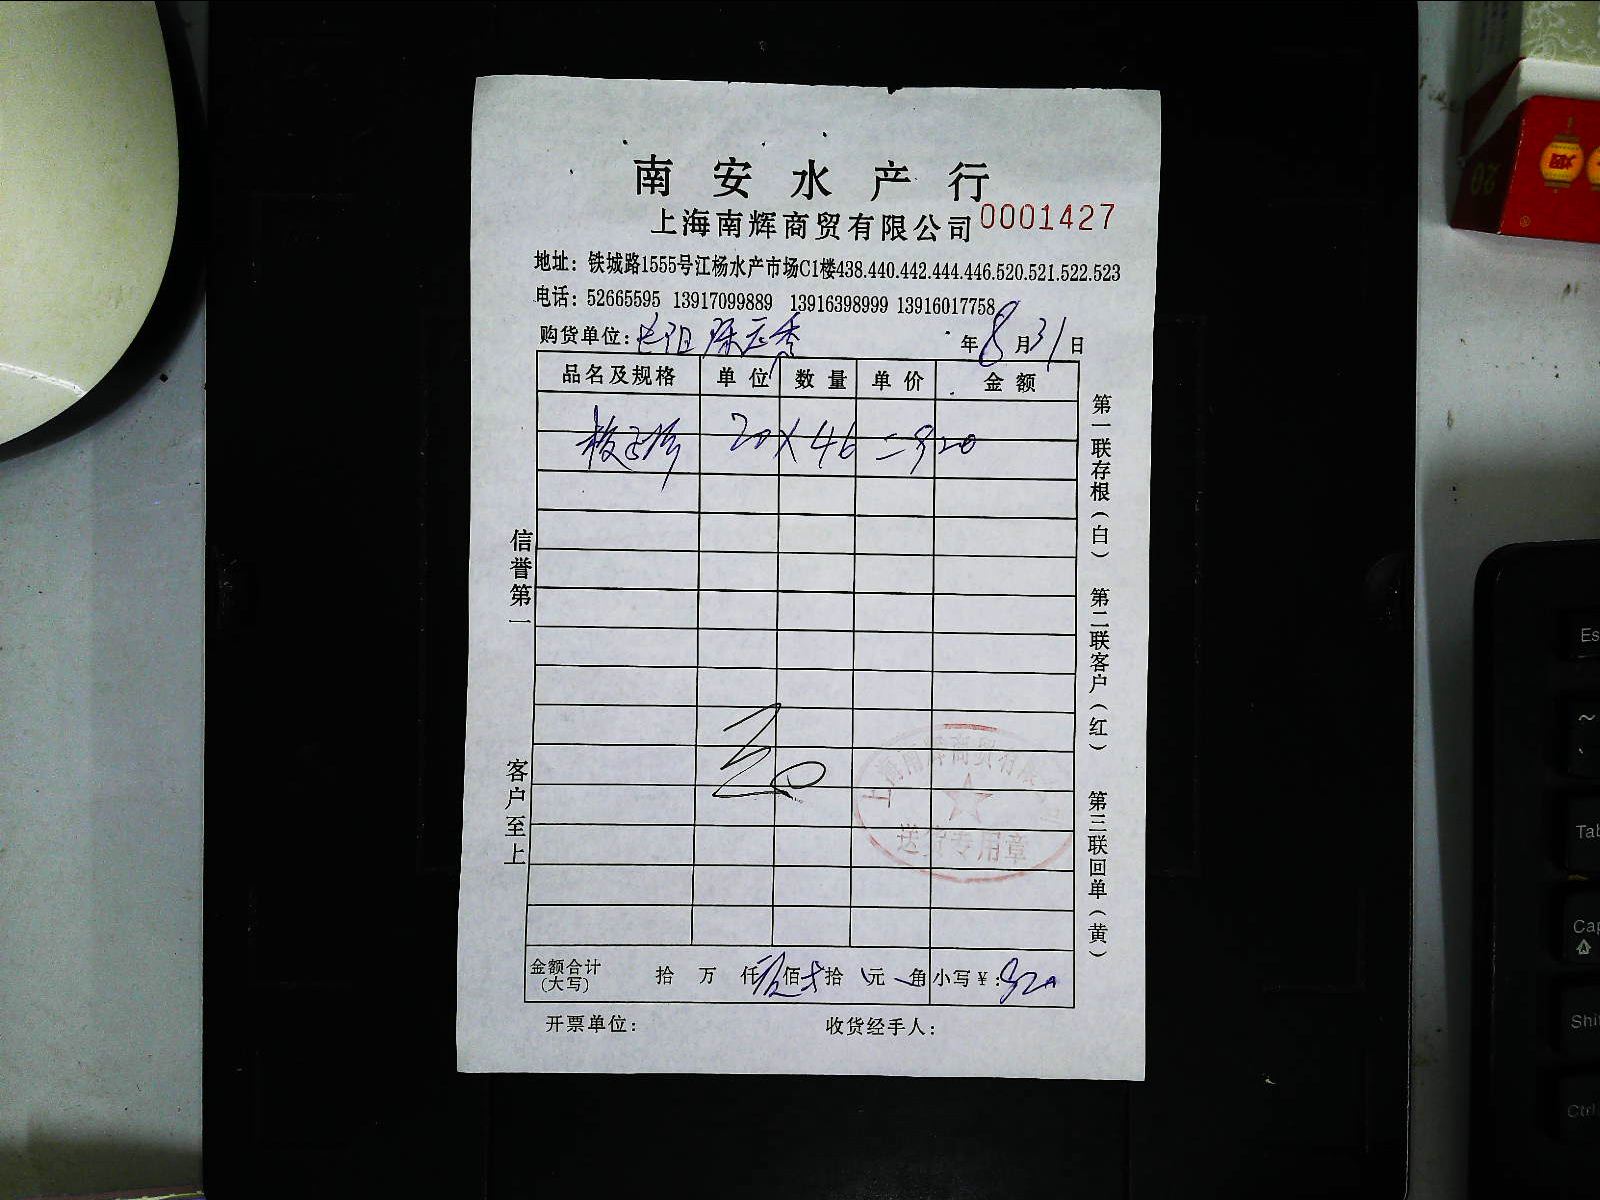 南安水产行
上海南辉商贸有限公司 0001427
地址：铁城路1555号江杨水产市场C1楼438.440.442.444.446.520.521.522.523
电话：52665595 13917099889 13916398999 13916017758
购货单位：
年8月31日
品名及规格 单位 数量 单价 金额
20×46=920
信誉第一
客户至上
第一联存根（白） 第二联客户（红） 第三联回单（黄）
上海南辉商贸有限公司
送货专用章
金额合计（大写） 拾 万 仟 佰 拾 元 角 小写￥：920
开票单位： 收货经手人：
烟
20
Es
~
Tab
Cap
Shi
Ctrl